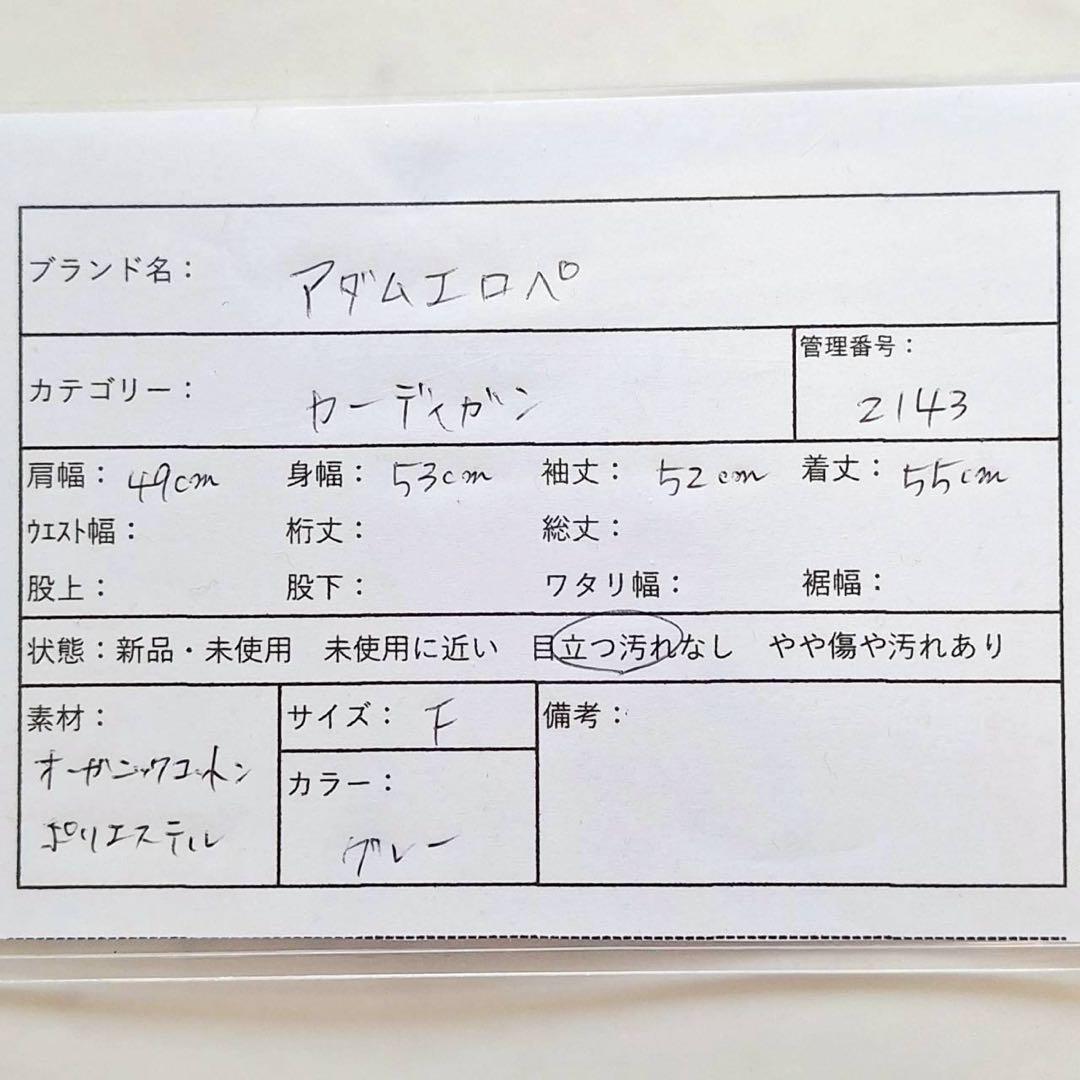 ブランド名： アダムエロペ
カテゴリー： カーディガン
管理番号： 2143
肩幅： 49cm 身幅： 53cm 袖丈： 52cm 着丈： 55cm
ウエスト幅： 裄丈： 総丈：
股上： 股下： ワタリ幅： 裾幅：
状態：新品・未使用 未使用に近い 目立つ汚れなし やや傷や汚れあり
素材： サイズ： F 備考：
オーガニックコットン
ポリエステル
カラー：
グレー